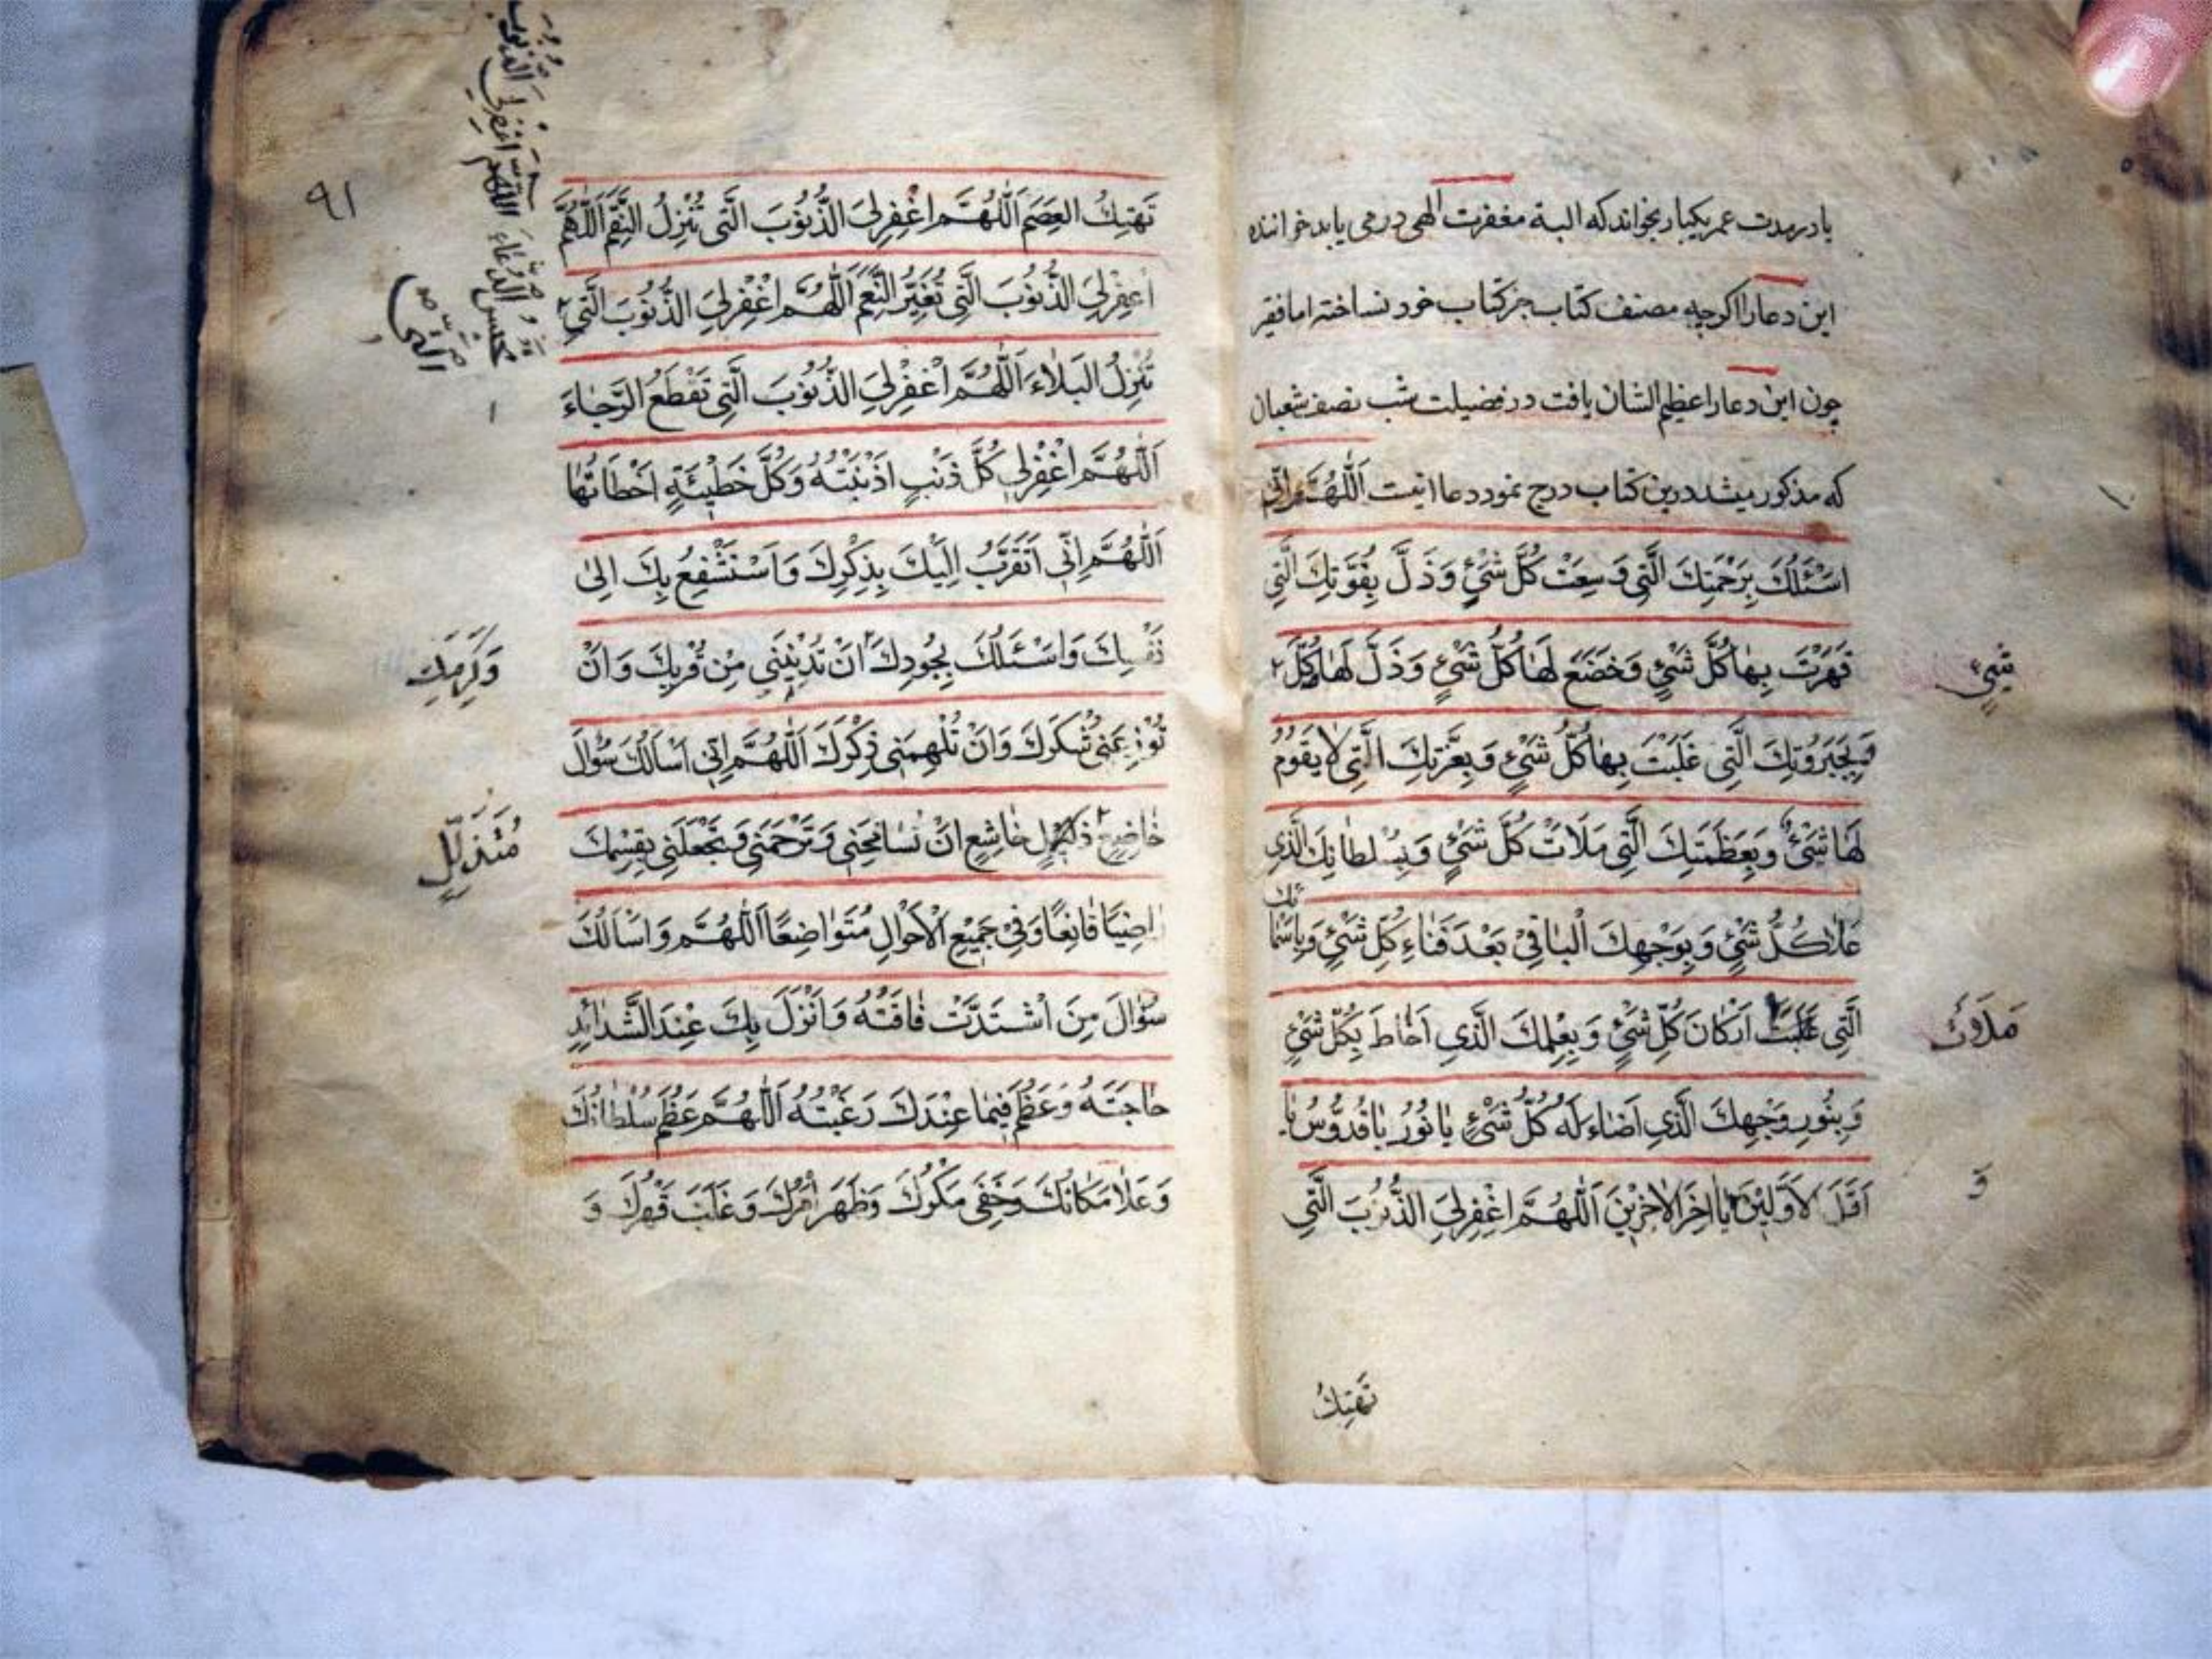 یا در مدت عمر یکبار بخواند که البته مغفرت الهی در می یابد خواننده
این دعا را اکرچه مصنف کتاب جز کتاب خود نساخته اما فقیر
چون این دعا را عظیم الشان یافت در فضیلت شب نصف شعبان
که مذکور میشد درین کتاب درج نمود دعا اینت اَللّٰهُمَّ اِنّی
اَسْئَلُكَ بِرَحْمَتِكَ الَّتِی وَسِعَتْ كُلَّ شَیْءٍ وَ بِقُوَّتِكَ الَّتِی
قَهَرْتَ بِهٰا كُلَّ شَیْءٍ وَخَضَعَ لَهٰا كُلُّ شَیْءٍ وَذَلَّ لَهٰا كُلُّ
شَیْءٍ
وَبِجَبَرُوتِكَ الَّتِی غَلَبْتَ بِهٰا كُلَّ شَیْءٍ وَبِعِزَّتِكَ الَّتِی لٰا یَقُومُ
لَهٰا شَیْءٌ وَبِعَظَمَتِكَ الَّتِی مَلَأَتْ كُلَّ شَیْءٍ وَبِسُلْطٰانِكَ الَّذِی
عَلٰا كُلَّ شَیْءٍ وَبِوَجْهِكَ الْبٰاقِیْ بَعْدَ فَنٰاءِ كُلِّ شَیْءٍ وَبِاَسْمٰا
ئِكَ
الَّتِی غَلَبَتْ اَرْكٰانَ كُلِّ شَیْءٍ وَبِعِلْمِكَ الَّذِی اَحٰاطَ بِكُلِّ شَیْءٍ
مَلَأَتْ
وَبِنُورِ وَجْهِكَ الَّذِی اَضٰاءَ لَهُ كُلُّ شَیْءٍ یٰا نُوْرُ یٰا قُدُّوْسُ یٰا
اَوَّلَ الْاَوَّلِیْنَ یٰا اٰخِرَ الْاٰخِرِیْنَ اَللّٰهُمَّ اغْفِرْلِیَ الذُّنُوْبَ الَّتِی
وَ
تَهْتِكُ
٩١
تَهْتِكُ العِصَمَ اَللّٰهُمَّ اغْفِرْلِیَ الذُّنُوْبَ الَّتِی تُنْزِلُ النِّقَمَ اَللّٰهُمَّ
اغْفِرْلِیَ الذُّنُوْبَ الَّتِی تُغَیِّرُ النِّعَمَ اَللّٰهُمَّ اغْفِرْلِیَ الذُّنُوْبَ الَّتِی
تَحْبِسُ الدُّعٰاءَ اَللّٰهُمَّ اغْفِرْلِیَ الذُّنُوْبَ
الَّتِی
تُنْزِلُ البَلٰاءَ اَللّٰهُمَّ اغْفِرْلِیَ الذُّنُوْبَ الَّتِی تَقْطَعُ الرَّجٰاءَ
اَللّٰهُمَّ اغْفِرْلِی كُلَّ ذَنْبٍ اَذْنَبْتُهُ وَكُلَّ خَطِیْئَةٍ اَخْطَاتُهٰا
اَللّٰهُمَّ اِنِّی اَتَقَرَّبُ اِلَیْكَ بِذِكْرِكَ وَاَسْتَشْفِعُ بِكَ اِلیٰ
نَفْسِكَ وَاَسْئَلُكَ بِجُودِكَ اَنْ تُدْنِیَنِی مِنْ قُرْبِكَ وَاَنْ
وَكَرَمِكَ
تُوْزِعَنِی شُكْرَكَ وَاَنْ تُلْهِمَنِی ذِكْرَكَ اَللّٰهُمَّ اِنِّی اَسْاَلُكَ سُؤٰالَ
خٰاضِعٍ ذَلِیْلٍ خٰاشِعٍ اَنْ تُسٰامِحَنِی وَتَرْحَمَنِی وَتَجْعَلَنِی بِقِسْمِكَ
مُتَذَلِّلٍ
رٰاضِیًا قٰانِعًا وَفِیْ جَمِیْعِ الْاَحْوٰالِ مُتَوٰاضِعًا اَللّٰهُمَّ وَاَسْاَلُكَ
سُؤٰالَ مَنِ اشْتَدَّتْ فٰاقَتُهُ وَاَنْزَلَ بِكَ عِنْدَ الشَّدٰائِدِ
حٰاجَتَهُ وَعَظُمَ فِیْمٰا عِنْدَكَ رَغْبَتُهُ اَللّٰهُمَّ عَظُمَ سُلْطٰانُكَ
وَعَلٰا مَكٰانُكَ وَخَفِیَ مَكْرُكَ وَظَهَرَ اَمْرُكَ وَغَلَبَ قَهْرُكَ وَ